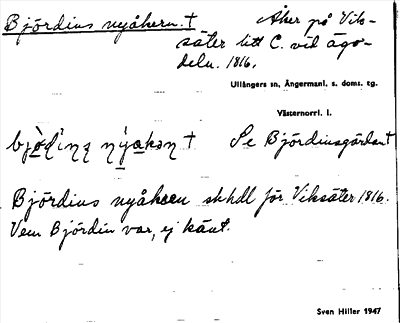 Björdins nyåkern. †
Åker på Vik-
säter litt C. vid ägo-
deln. 1816.
Ullångers sn, Ångermanl. s. doms. tg.
Västernorrl. l.
Se Björdinsgärdan †
Björdins nyåkern skhdl för Viksäter 1816.
Vem Björdin var, ej känt.
Sven Hiller 1947